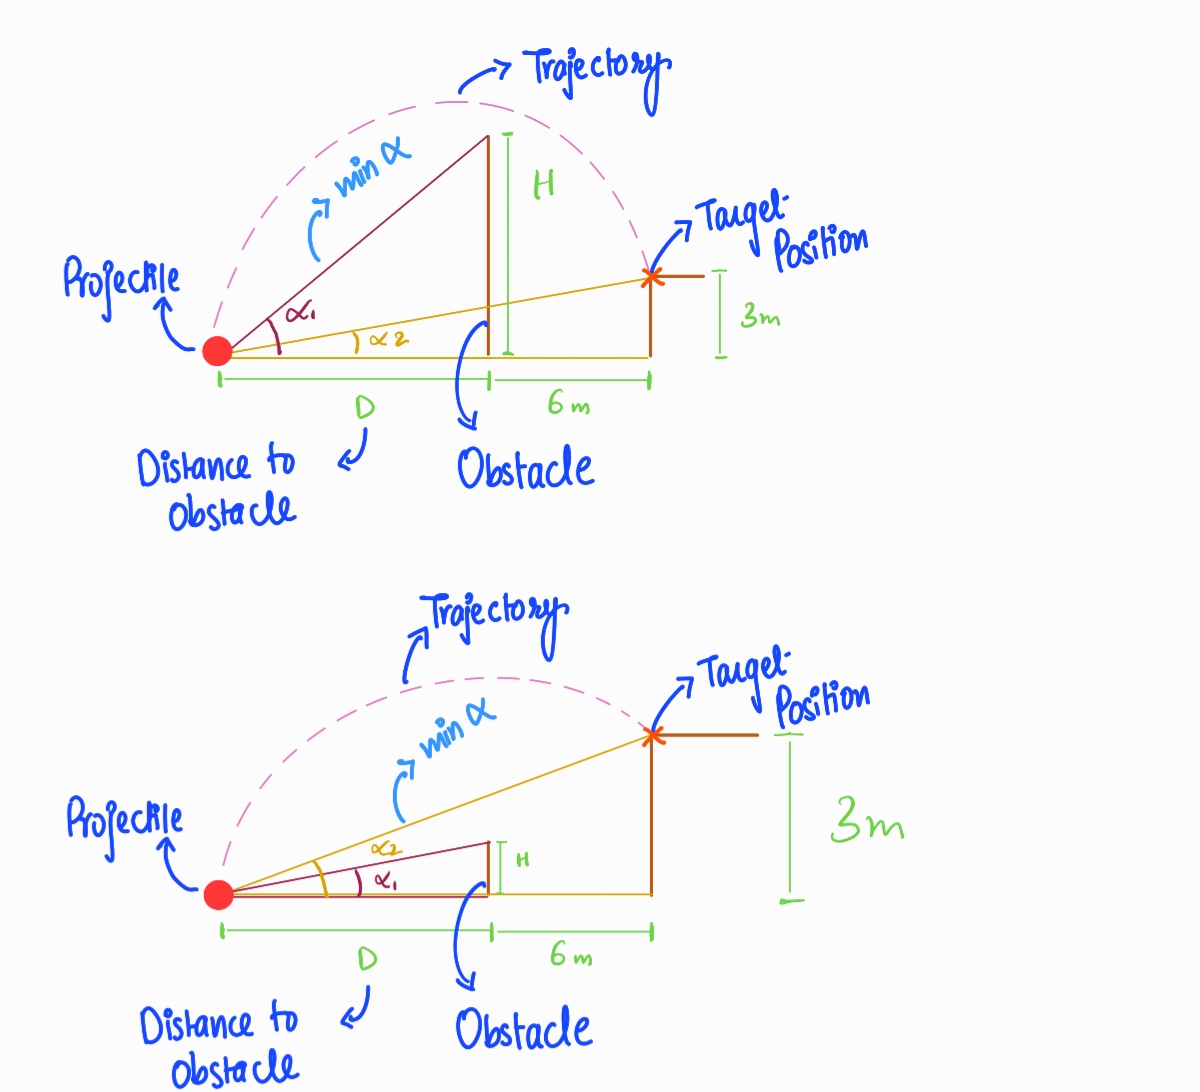 Trajectory
min α
H
Target
Position
Projectile
α1
α2
3m
D
6m
Distance to
obstacle
Obstacle
Trajectory
Target
Position
min α
Projectile
α2
H
α1
3m
D
6m
Distance to
obstacle
Obstacle